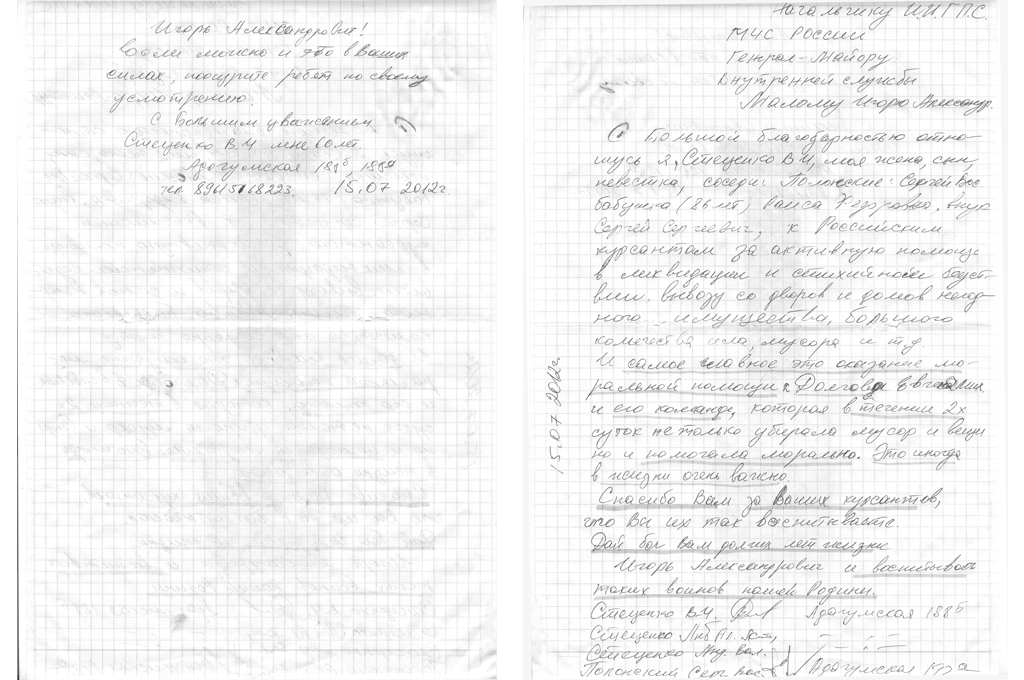 Игорь Александрович!
если можно и это в Ваших
силах, поощрите ребят по своему
усмотрению.
С большим уважением
Стеценко В И мне 60 лет.
Адагумская
тел. 15.07 2012г.
Начальнику И.И.ГПС.
МЧС РОССИИ
Генерал-Майору
Внутренней службы
Малому Игорю Александр.
С большой благодарностью отно-
шусь я, Стеценко В И, моя жена, сын,
невестка, соседи: Полонские: Сергей Вас
бабушка (86 лет) Раиса внук
Сергей Сергеевич, к Российским
курсантам за активную помощь
в ликвидации и стихийном бедст-
вии. вывозу со дворов и домов негод-
ного имущества, большого
количества ила, мусора и т д.
И самое главное это оказание мо-
ральной помощи
и его команде, которая в течении 2х
суток не только убирала мусор и вещи
но и помогала морально. Это иногда
в жизни очень важно.
Спасибо Вам за Ваших курсантов,
что Вы их так воспитываете.
Дай бог Вам долгих лет жизни
Игорь Александрович и воспитывать
таких воинов нашей Родины.
Стеценко В И. Адагумская
Стеценко
Стеценко
Полонский Серг Вас. Адагумская
15.07 2012г.